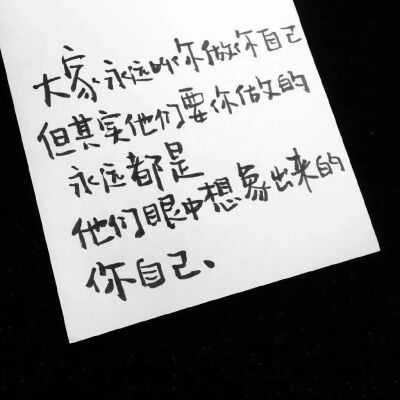 大家永远叫你做你自己
但其实他们要你做的
永远都是
他们眼中想象出来的
你自己、